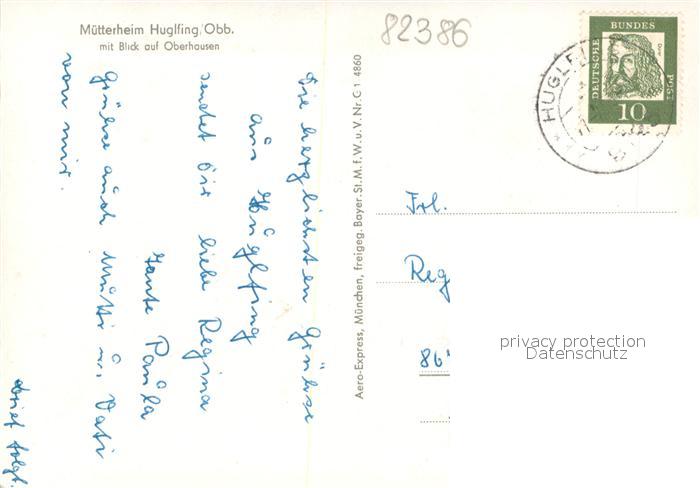 Mütterheim Huglfing/Obb.
mit Blick auf Oberhausen
82386
DEUTSCHE
BUNDES
POST
Dürer
10
HUGLFI
Die herzlichsten Grüße
aus Huglfing
sendet Dir liebe Regina
Tante Paula
Grüße auch Mutti u. Vati
von mir.
Brief folgt.
Aero-Express, München, freigeg. Bayer. St. M. f. W. u. V. Nr. G 1 4860
Frl.
Reg
86
privacy protection
Datenschutz